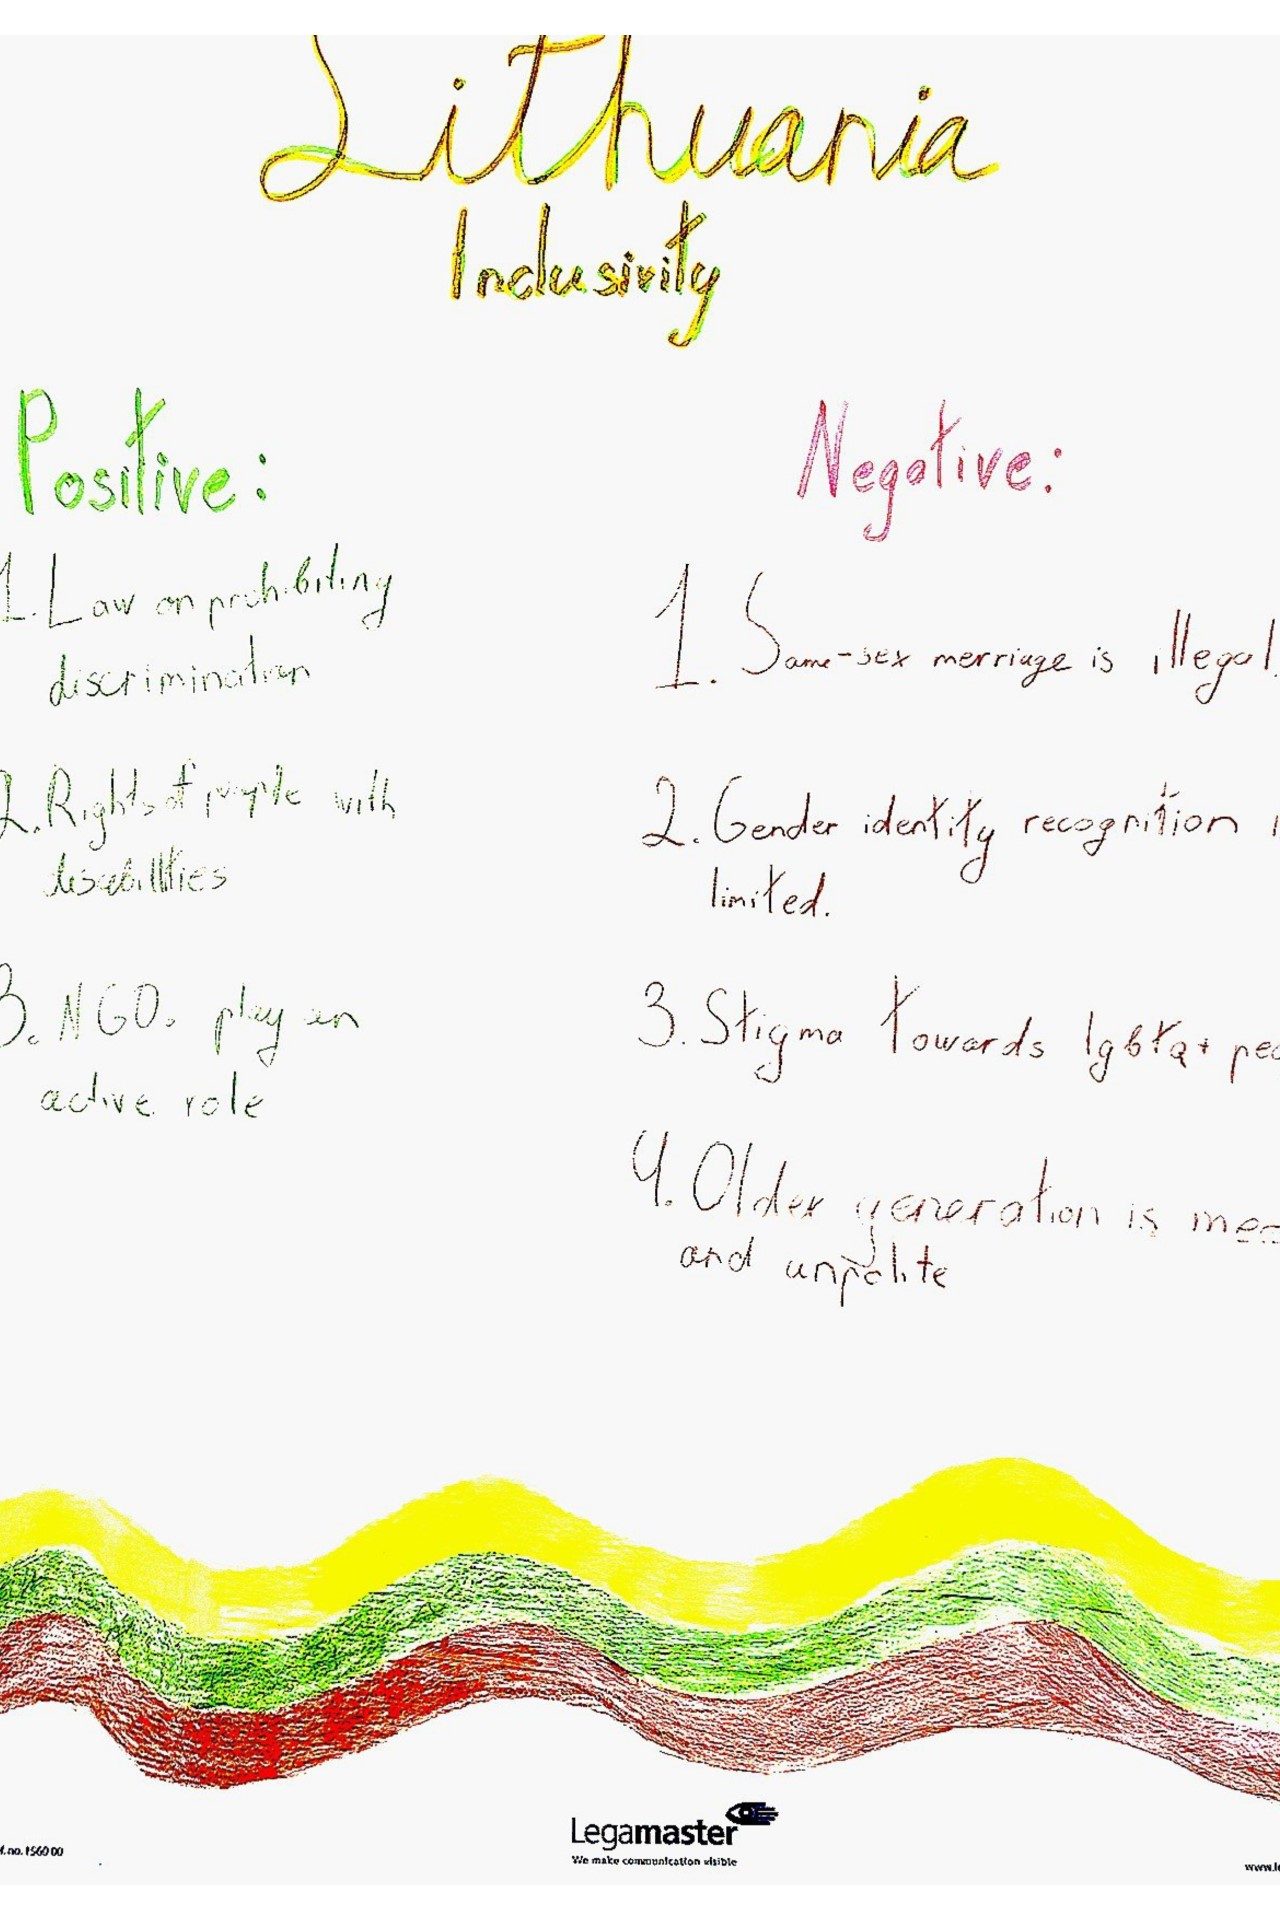 Lithuania
Inclusivity
Positive:
1. Law on prohibiting
discrimination
2. Rights of people with
disabilities
3. NGOs play an
active role
Negative:
1. Same-sex merriage is illegal.
2. Gender identity recognition
limited.
3. Stigma towards lgbtq+
4. Older generation is
and unpolite
Legamaster
We make communication visible
no. 156000